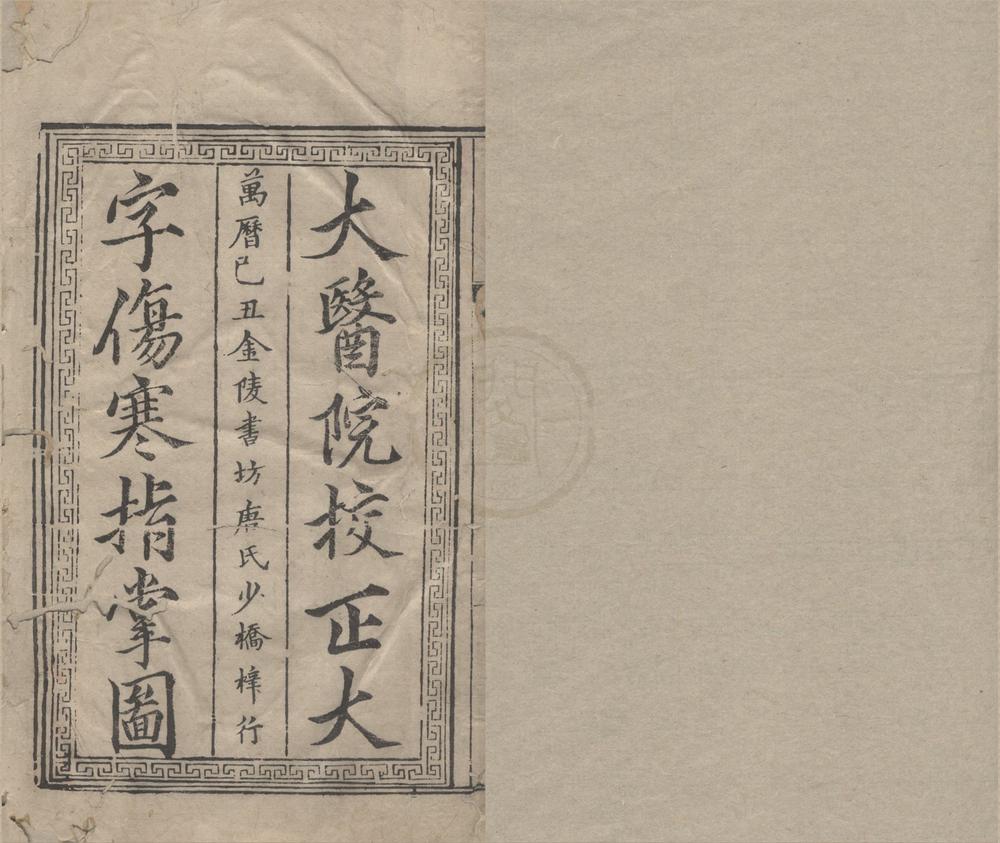 大醫院校正大
萬曆己丑金陵書坊唐氏少橋梓行
字傷寒指掌圖